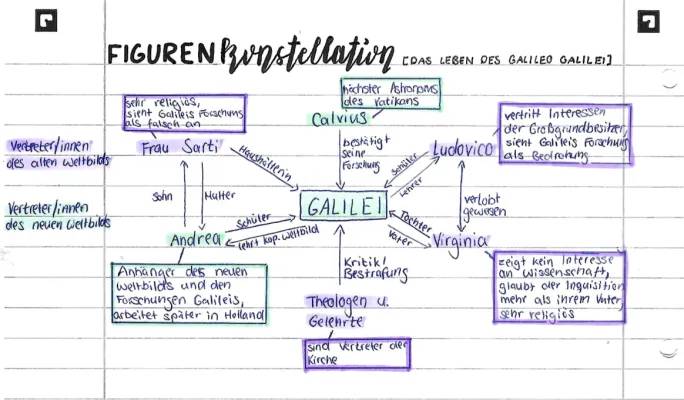 FIGURENkonstellation [DAS LEBEN DES GALILEO GALILEI]
sehr religiös,
sieht Galileis Forschung
als falsch an
höchster Astronom
des Vatikans
Calvius
vertritt Interessen
der Großgrundbesitzer,
sieht Galileis Forschung
als Bedrohung
Vertreter/innen
des alten Weltbilds
Frau Sarti
Haushälterin
bestätigt
seine
Forschung
Schüler
Lehrer
Ludovico
Vertreter/innen
des neuen Weltbilds
Sohn
Mutter
GALILEI
verlobt
gewesen
Andrea
Schüler
lehrt kop. Weltbild
Tochter
Vater
Virginia
Anhänger des neuen
Weltbilds und den
Forschungen Galileis,
arbeitet später in Holland
Kritik/
Bestrafung
Theologen u.
Gelehrte
sind Vertreter der
Kirche
zeigt kein Interesse
an Wissenschaft,
glaubt der Inquisition
mehr als ihrem Vater,
sehr religiös